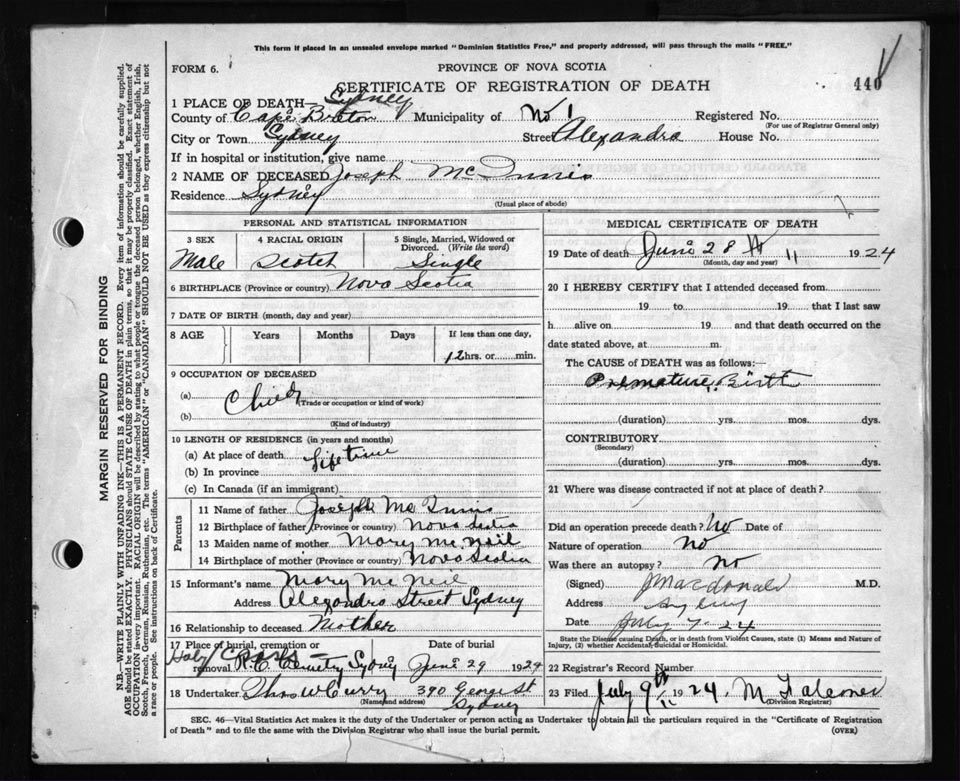 This form if placed in an unsealed envelope marked "Dominion Statistics Free," and properly addressed, will pass through the mails "FREE."
FORM 6.
PROVINCE OF NOVA SCOTIA
CERTIFICATE OF REGISTRATION OF DEATH
440
1 PLACE OF DEATH— Sydney
County of Cape Breton Municipality of No 1 Registered No.
(For use of Registrar General only)
City or Town Sydney Street Alexandra House No.
If in hospital or institution, give name
2 NAME OF DECEASED Joseph McInnis
Residence Sydney
(Usual place of abode)
PERSONAL AND STATISTICAL INFORMATION
3 SEX
Male
4 RACIAL ORIGIN
Scotch
5 Single, Married, Widowed or Divorced. (Write the word)
Single
6 BIRTHPLACE (Province or country) Nova Scotia
7 DATE OF BIRTH (month, day and year)
8 AGE Years Months Days If less than one day,
12 hrs. or min.
9 OCCUPATION OF DECEASED
(a) Child
(Trade or occupation or kind of work)
(b)
(Kind of industry)
10 LENGTH OF RESIDENCE (in years and months)
(a) At place of death Lifetime
(b) In province
(c) In Canada (if an immigrant)
Parents
11 Name of father Joseph McInnis
12 Birthplace of father (Province or country) Nova Scotia
13 Maiden name of mother Mary McNeil
14 Birthplace of mother (Province or country) Nova Scotia
15 Informant's name Mary McNeil
Address Alexandra Street Sydney
16 Relationship to deceased Mother
17 Place of burial, cremation or Date of burial
Holy Cross
removal R.C. Cemetry Sydney June 29 1924
18 Undertaker Thos W Curry 390 George St.
(Name and address) Sydney
MEDICAL CERTIFICATE OF DEATH
19 Date of death June 28 11 1924
(Month, day and year)
20 I HEREBY CERTIFY that I attended deceased from
19 to 19 that I last saw
h alive on 19 and that death occurred on the
date stated above, at m.
The CAUSE OF DEATH was as follows:—
Premature Birth
(duration) yrs. mos. dys.
CONTRIBUTORY
(Secondary)
(duration) yrs. mos. dys.
21 Where was disease contracted if not at place of death?
Did an operation precede death? No Date of
Nature of operation No
Was there an autopsy? No
(Signed) J Macdonald M.D.
Address Sydney
Date July 7 - 24
State the Disease causing Death, or in death from Violent Causes, state (1) Means and Nature of Injury, (2) whether Accidental, Suicidal or Homicidal.
22 Registrar's Record Number
23 Filed July 9th 1924. M Falconer
(Division Registrar)
SEC. 46—Vital Statistics Act makes it the duty of the Undertaker or person acting as Undertaker to obtain all the particulars required in the "Certificate of Registration
of Death" and to file the same with the Division Registrar who shall issue the burial permit. (OVER)
MARGIN RESERVED FOR BINDING
N.B.—WRITE PLAINLY WITH UNFADING INK—THIS IS A PERMANENT RECORD. Every item of information should be carefully supplied.
AGE should be stated EXACTLY. PHYSICIANS should STATE CAUSE OF DEATH in plain terms, so that it may be properly classified. Exact statement of
OCCUPATION is very important. RACIAL ORIGIN will be described by stating to what people or tongue the deceased person belonged, whether English, Irish,
Scotch, French, German, Russian, Ruthenian, etc. The terms "AMERICAN" or "CANADIAN" SHOULD NOT BE USED as they express citizenship but not
a race or people. See instructions on back of Certificate.